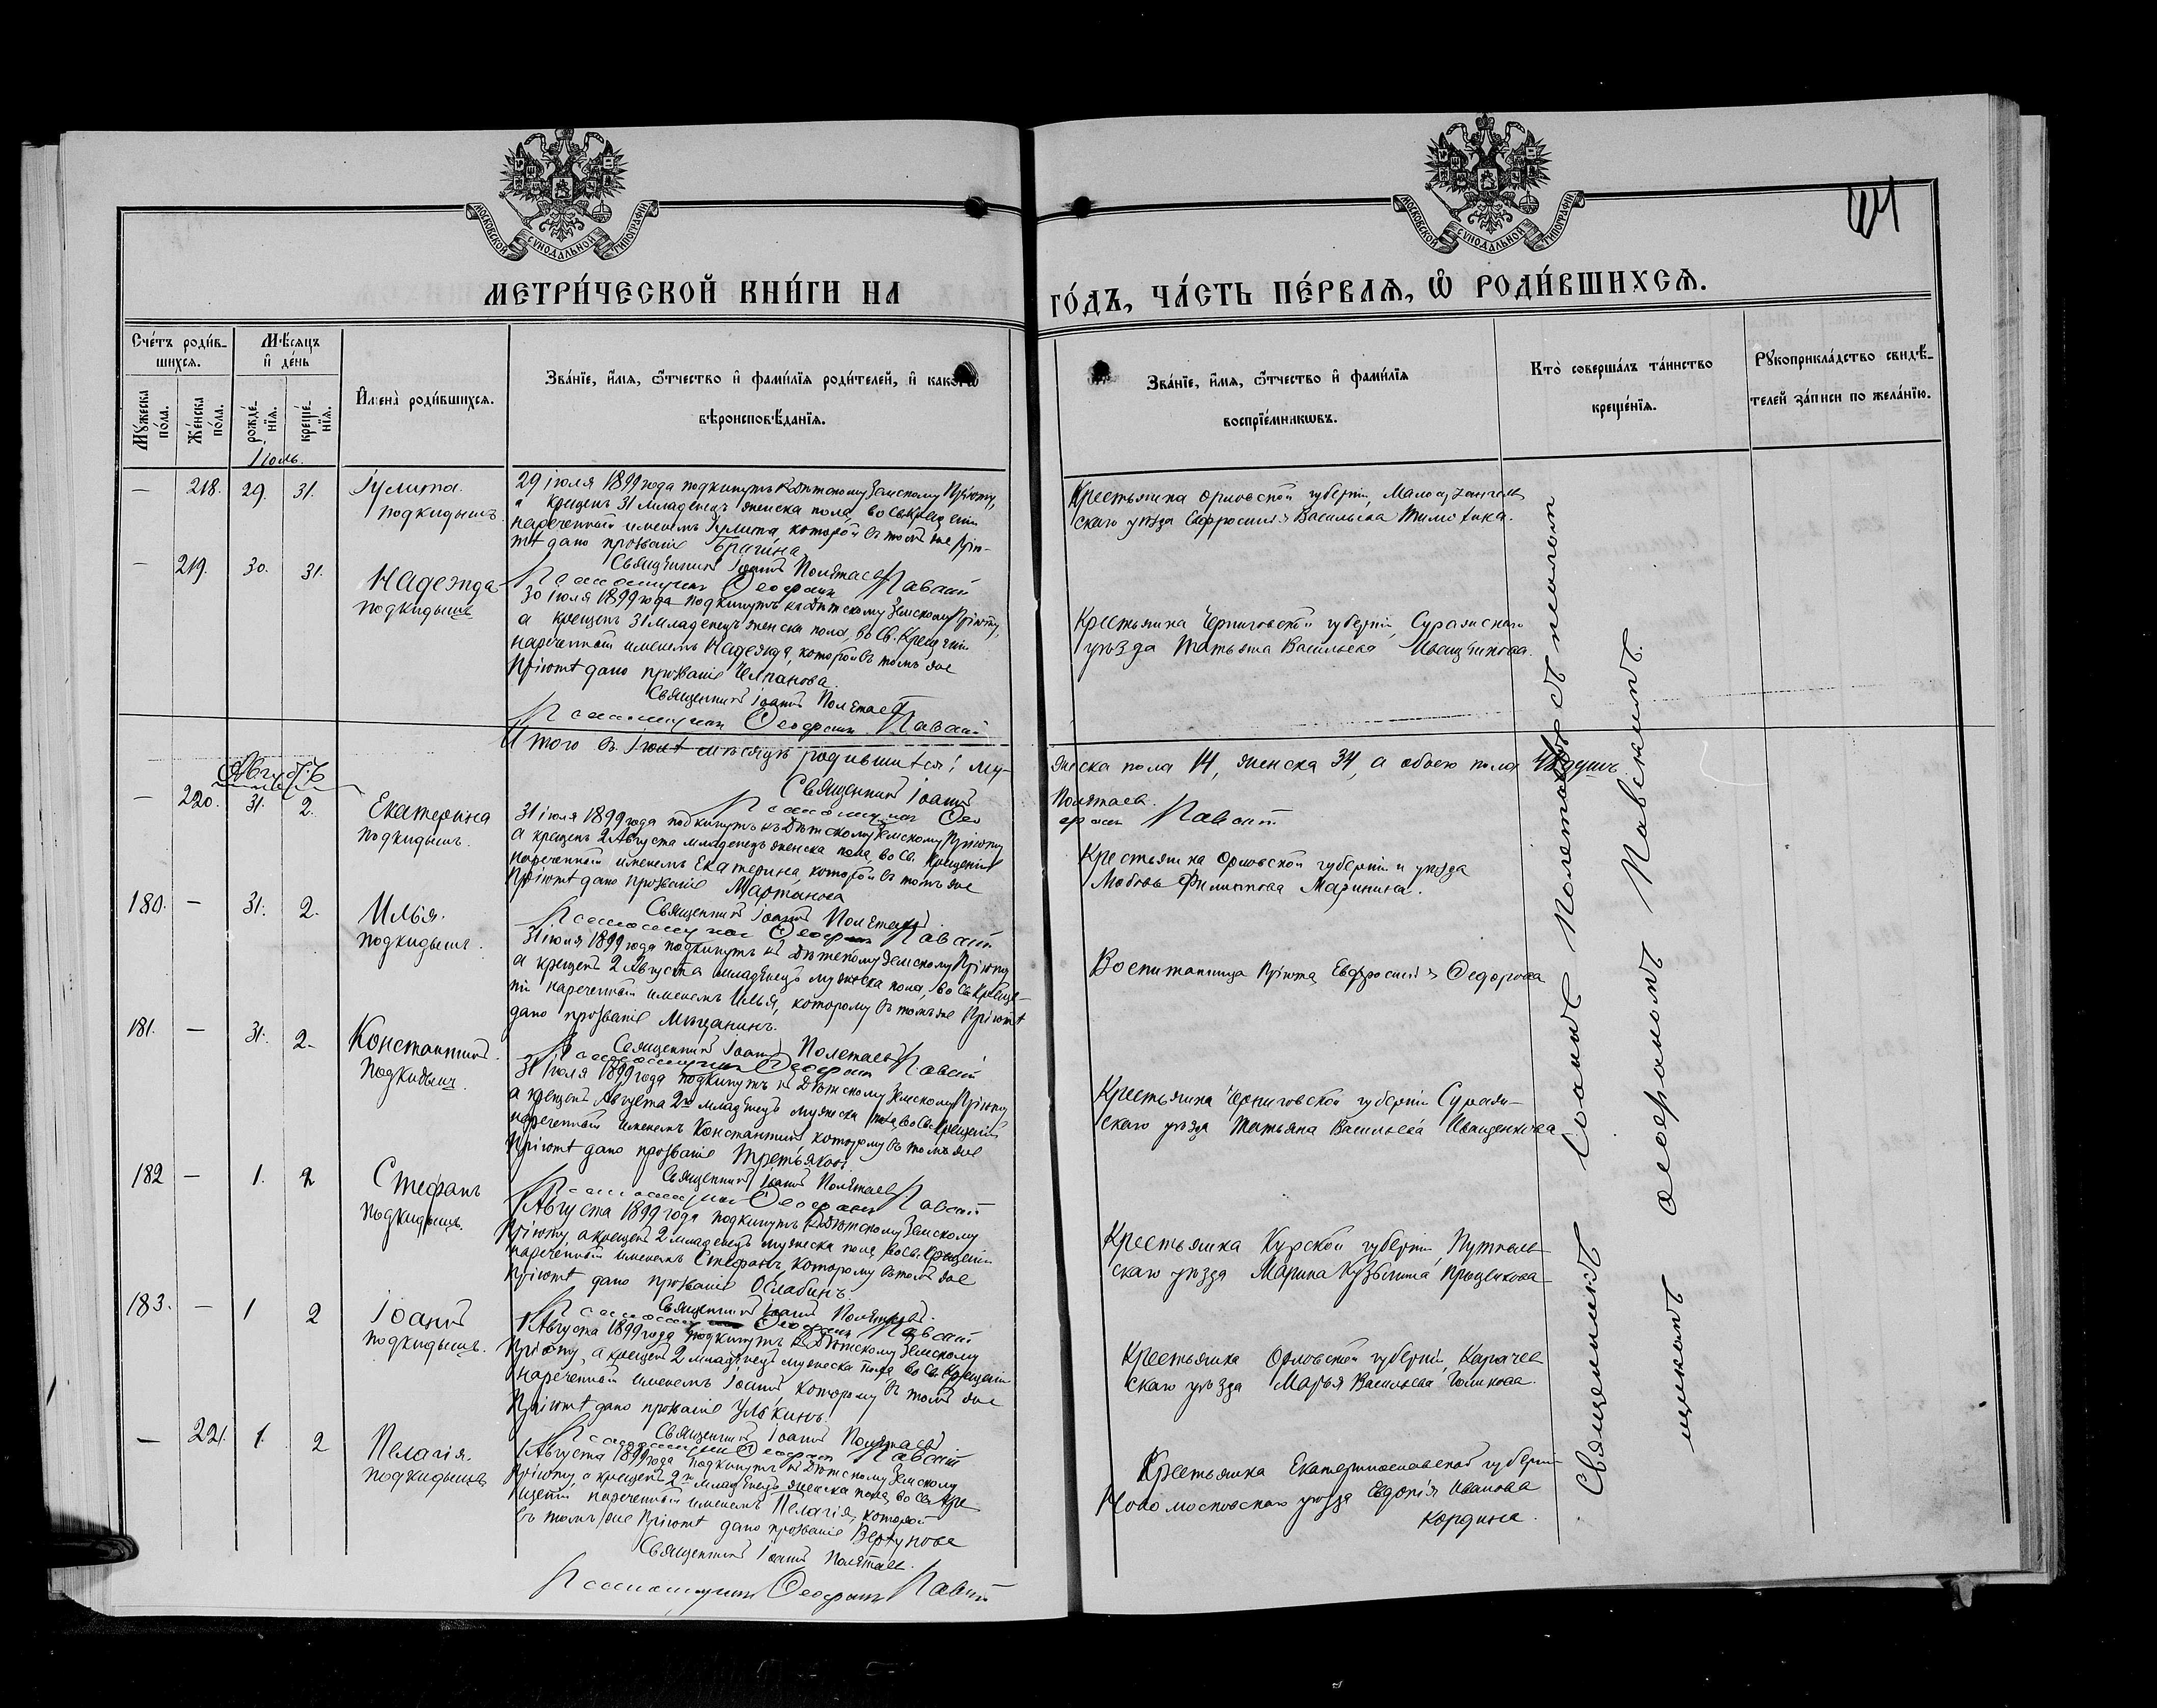 МОСКОВСКОЙ СѴНОДАЛЬНОЙ ТИПОГРАФІИ
МОСКОВСКОЙ СѴНОДАЛЬНОЙ ТИПОГРАФІИ
МЕТРИ́ЧЕСКОЙ КНИ́ГИ НА
ГО́ДЪ, ЧА́СТЬ ПЕ́РВАѦ, Ѿ РОДИ́ВШИХСѦ.
Сче́тъ роди́в-
шихся.
Мꙋ́жеска по́ла.
Же́нска по́ла.
Мѣ́сяцъ
и҆ де́нь
рожде́-
нїя.
креще́-
нїя.
И҆мена̀ роди́вшихся.
Зва́нїе, и҆́мя, ѻ҆́тчество и҆ фами́лїя роди́телей, и҆ како́гѡ
вѣроисповѣ́данїя.
Зва́нїе, и҆́мя, ѻ҆́тчество и҆ фами́лїя
воспрїе́мникѡвъ.
Кто̀ соверша́лъ та́инство
креще́нїя.
Рꙋкоприкла́дство свидѣ́-
телей за́писи по жела́нїю.
Іюль.
— 218. 29. 31.
Іулита.
подкидышъ.
29 іюля 1899 года подкинутъ къ Дѣтскому Земскому Пріюту,
а крещенъ 31 младенецъ женска пола, во Св. Крещеніи
нареченный именемъ Іулита, которой въ томъ же Прію-
тѣ дано прозваніе Брагина
Священникъ Іоаннъ Полѣтаевъ
Крестьянка Орловской губерніи, Малоархангель
скаго уѣзда Евфросинія Васильева
— 219. 30. 31.
Надежда
подкидышъ
30 іюля 1899 года подкинутъ къ Дѣтскому Земскому Пріюту,
а крещенъ 31 младенецъ женска пола, во Св. Крещеніи
нареченный именемъ Надежда, которой въ томъ же
Пріютѣ дано прозваніе Челпанова.
Священникъ Іоаннъ Полѣтаевъ
Крестьянка Черниговской губерніи, Суражскаго
уѣзда Татьяна Васильева Иващенкова.
Итого въ Іюлѣ мѣсяцѣ родившихся: му-
жеска пола 14, женска 34, а обоего пола 48 душъ.
Священникъ Іоаннъ
Полѣтаевъ.
Августъ
— 220. 31. 2.
Екатерина
подкидышъ.
31 іюля 1899 года подкинутъ къ Дѣтскому Земскому Пріюту
а крещенъ 2 Августа младенецъ женска пола, во Св. Крещеніи
нареченный именемъ Екатерина, которой въ томъ же
Пріютѣ дано прозваніе Мартанова
Священникъ Іоаннъ Полѣтаевъ.
Крестьянка Орловской губерніи и уѣзда
Любовь Филиппова Маринина.
180. — 31. 2.
Илья.
подкидышъ.
31 іюля 1899 года подкинутъ къ Дѣтскому Земскому Пріюту
а крещенъ 2 Августа младенецъ мужеска пола, во Св. Креще-
ніи нареченный именемъ Илья, которому въ томъ же Пріютѣ
дано прозваніе Мѣщанинъ.
Священникъ Іоаннъ Полетаевъ
Воспитанница Пріюта Евфросинія Федорова
181. — 31. 2.
Константинъ.
Подкидышъ.
31 Іюля 1899 года подкинутъ къ Дѣтскому Земскому Пріюту
а крещенъ Августа 2го младенецъ мужеска пола, во Св. Крещеніи
нареченный именемъ Константинъ которому въ томъ же
Пріютѣ дано прозваніе Третьяковъ.
Священникъ Іоаннъ Полѣтаевъ.
Крестьянка Черниговской губерніи Сураж-
скаго уѣзда Татьяна Васильева Иващенкова
182 — 1. 2
Стефанъ
подкидышъ.
1 Августа 1899 года подкинутъ къ Дѣтскому Земскому
Пріюту, а крещенъ 2 младенецъ мужеска пола, во Св. Крещеніи
нареченный именемъ Стефанъ, которому въ томъ же
Пріютѣ дано прозваніе Ослабинъ.
Священникъ Іоаннъ Полѣтаевъ.
Крестьянка Курской губерніи, Путивль
скаго уѣзда Марина Кузьмина
183. — 1 2
Іоаннъ
подкидышъ.
1 Августа 1899 года подкинутъ къ Дѣтскому Земскому
Пріюту, а крещенъ 2 младенецъ мужеска пола во Св. Крещеніи
нареченный именемъ Іоаннъ, которому въ томъ же
Пріютѣ дано прозваніе Улькинъ.
Священникъ Іоаннъ Полѣтаевъ.
Крестьянка Орловской губерніи, Карачев
скаго уѣзда Марья Васильева Голикова.
— 221. 1. 2
Пелагія.
подкидышъ
1 Августа 1899 года подкинутъ къ Дѣтскому Земскому
Пріюту, а крещенъ 2го младенецъ женска пола, во Св. Кре-
щеніи нареченный именемъ Пелагія, которой
въ томъ же Пріютѣ дано прозваніе Вертунова
Священникъ Іоаннъ Полѣтаевъ.
Крестьянка Екатеринославской губерніи
Новомосковскаго уѣзда Евдокія Иванова
Кордина.
Священникъ Іоаннъ Полетаевъ съ псаломщ
щикомъ Ѳеофаномъ